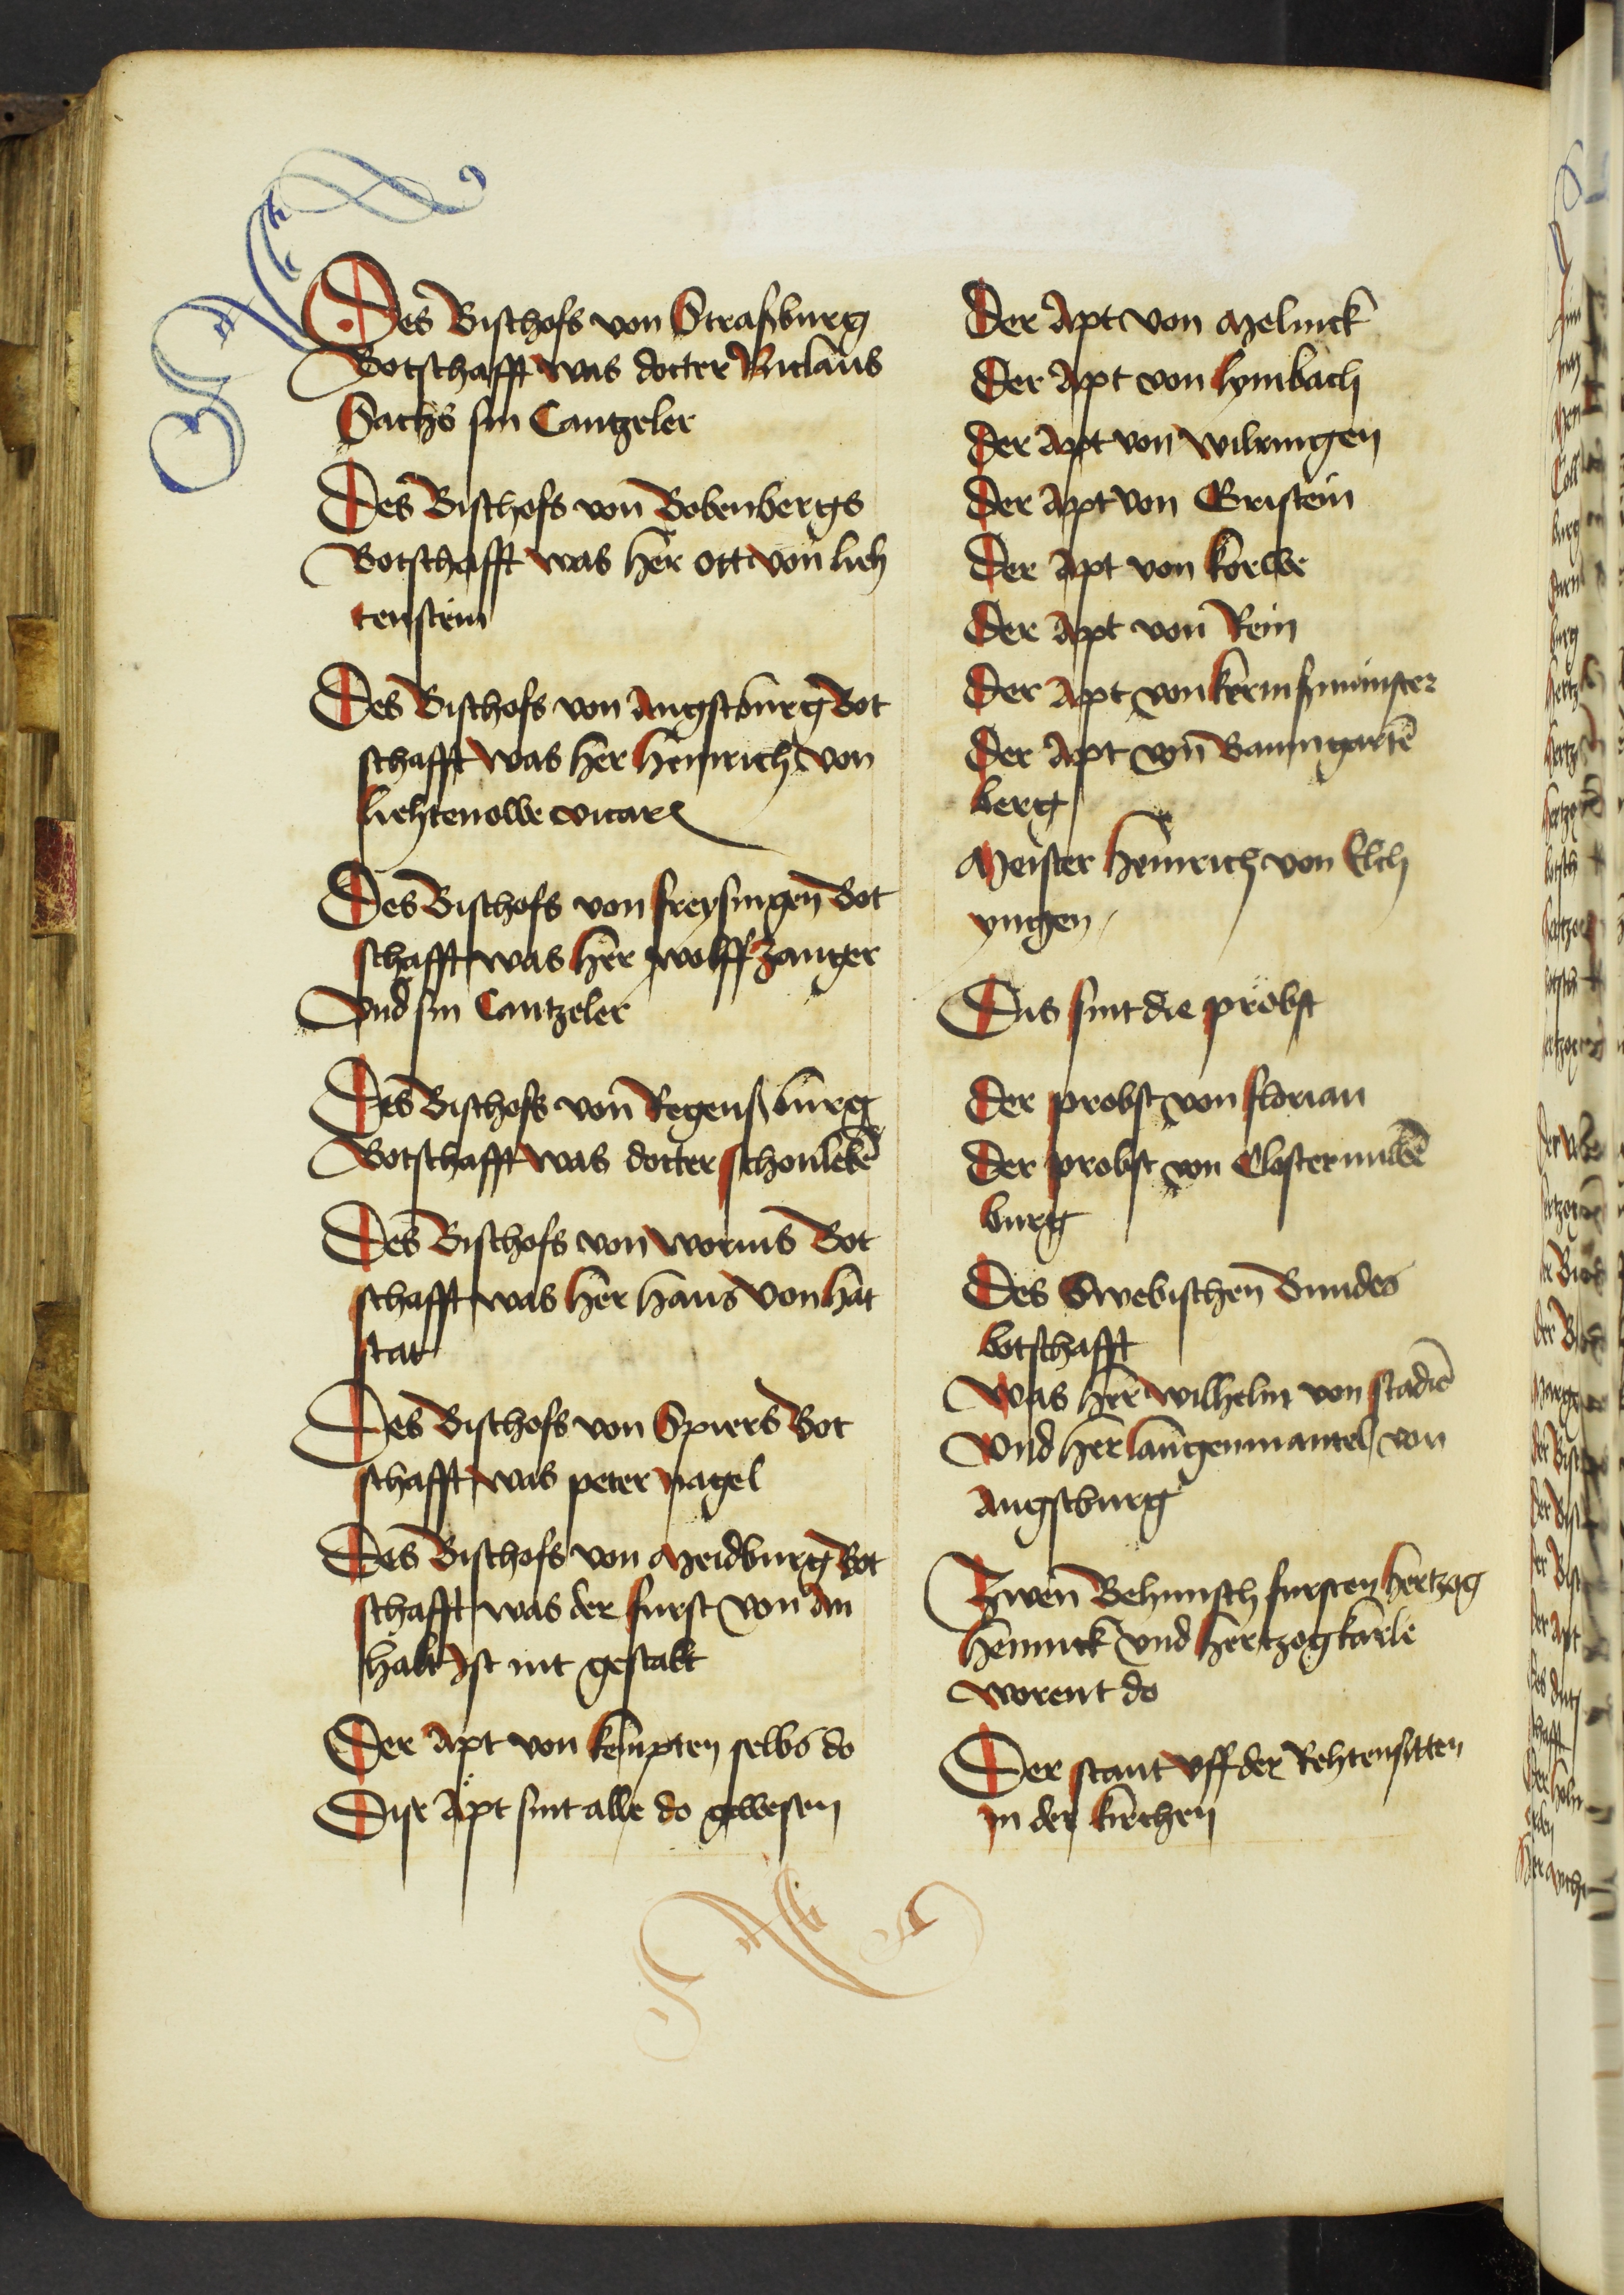 Des Bischofs von Straßburg
Botschafft was docter Niclaus
Sachs sin Cantzeler
Des Bischofs von Bobenbergs
Botschafft was her ott von lieh
tenstein
Des Bischofs von Augstburg Bot
schafft was her heinrich von
liehtenowe vicary
Des Bischofs von freysingen Bot
schafft was her wolff zanger
Vnd sin Cantzeler
Des Bischofs von Regenßburg
Botschafft was docter schonlebē
Des Bischofs von worms Bot
schafft was her hans von hat
stat
Des Bischofs von Spiers Bot
schafft was peter nagel
Des Bischofs von Meidburg Bot
schafft was der furst von An
halt ist nit gestalt
Der Apt von kempten selbs do
Dise Äpt sint alle do gewesen
Der Apt von Melinck
Der Apt von lymbach
Der Apt von wilringen
Der Apt von Gristein
Der Apt von korwe
Der Apt von Rein
Der Apt von kermßmünster
Der Apt von Baumgartē
berg
Meister heinrich von Elch
yngen
Dis sint die pröbst
Der probst von florian
Der probst von Closternuwē
burg
Des Swebischen Bundes
botschafft
Was her wilhelm von stadiē
Vnd her langenmantel von
Augstburg
Zwen Behimsch fursten hertzog
heinnick vnd hertzog karle
worent do
Der stant vff der Rehten sitten
in der kirchen